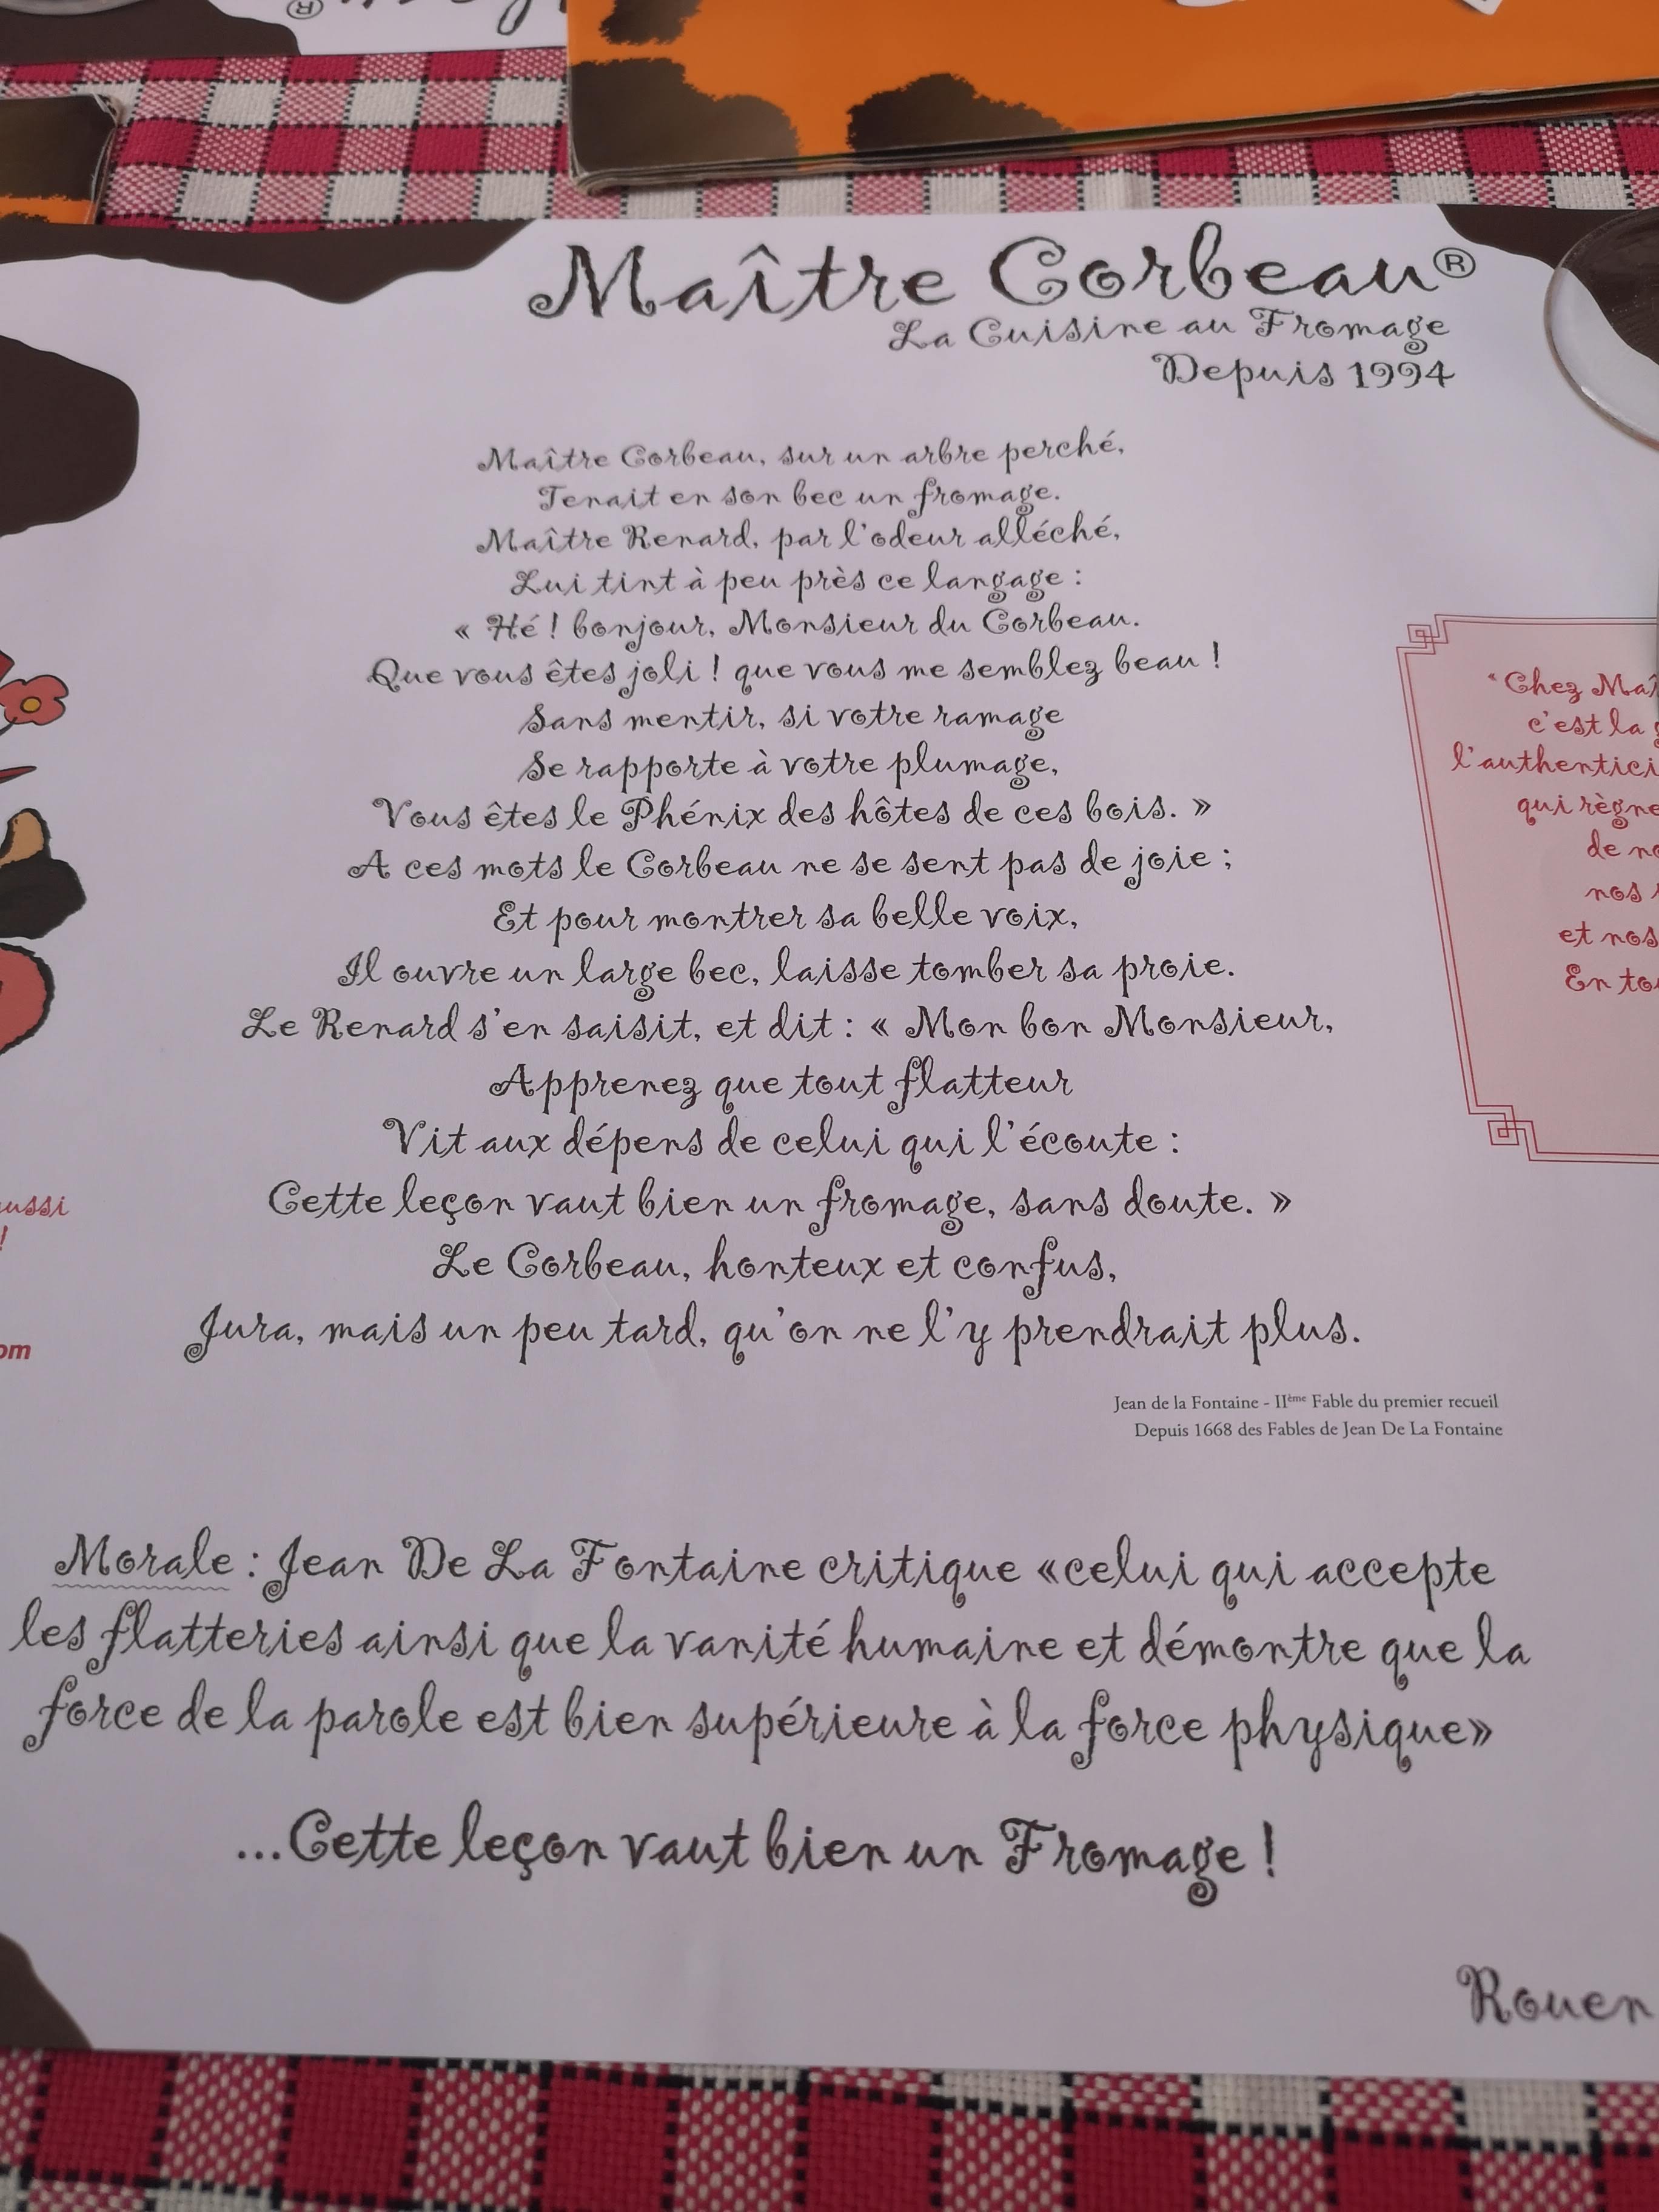 Maître Corbeau®
La Cuisine au Fromage
Depuis 1994
Maître Corbeau, sur un arbre perché,
Tenait en son bec un fromage.
Maître Renard, par l'odeur alléché,
Lui tint à peu près ce langage :
« Hé ! bonjour, Monsieur du Corbeau.
Que vous êtes joli ! que vous me semblez beau !
Sans mentir, si votre ramage
Se rapporte à votre plumage,
Vous êtes le Phénix des hôtes de ces bois. »
A ces mots le Corbeau ne se sent pas de joie ;
Et pour montrer sa belle voix,
Il ouvre un large bec, laisse tomber sa proie.
Le Renard s'en saisit, et dit : « Mon bon Monsieur,
Apprenez que tout flatteur
Vit aux dépens de celui qui l'écoute :
Cette leçon vaut bien un fromage, sans doute. »
Le Corbeau, honteux et confus,
Jura, mais un peu tard, qu'on ne l'y prendrait plus.
Jean de la Fontaine - IIème Fable du premier recueil
Depuis 1668 des Fables de Jean De La Fontaine
Morale : Jean De La Fontaine critique «celui qui accepte
les flatteries ainsi que la vanité humaine et démontre que la
force de la parole est bien supérieure à la force physique»
...Cette leçon vaut bien un Fromage !
"Chez Maî
c'est la g
l'authentici
qui règne
de no
nos
et nos
En to
ussi
!
om
Rouen